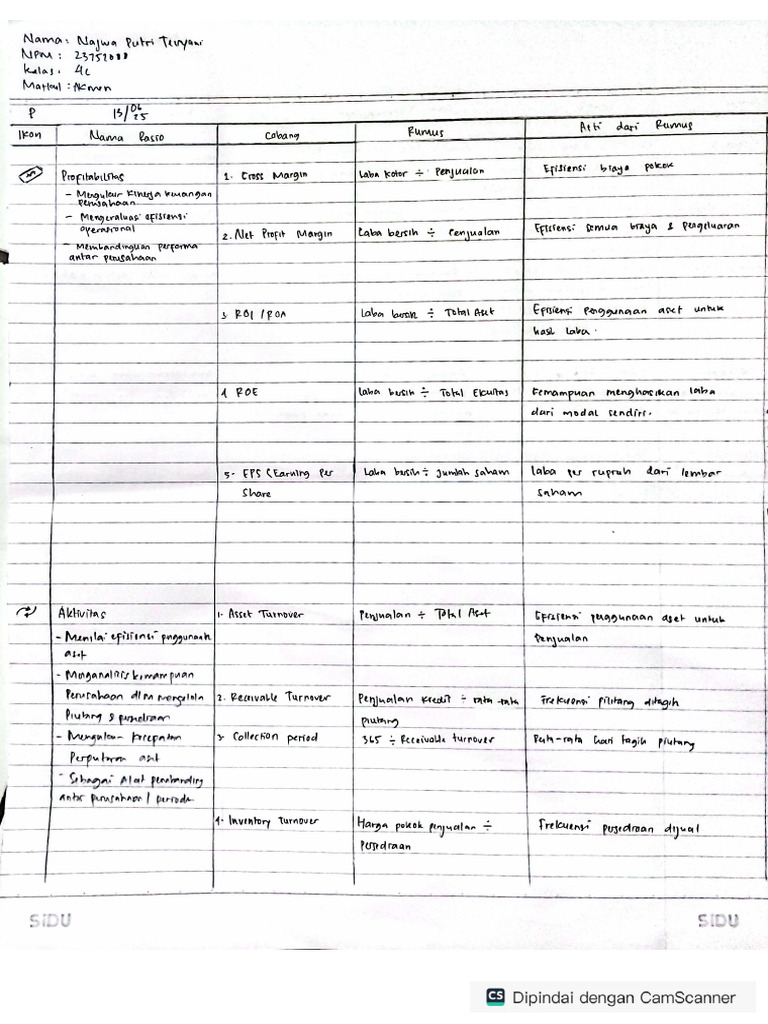 Nama : Najwa Putri Tevyani
NPM : 23752088
Kelas : 4C
Matkul : Akmen
P 13/06 25
Ikon Nama Rasio Cabang Rumus Arti dari Rumus
Profitabilitas 1. Gross Margin Laba Kotor ÷ Penjualan Efisiensi biaya pokok
- Mengukur Kinerja keuangan
perusahaan
- Mengevaluasi efisiensi
operasional 2. Net Profit Margin Laba bersih ÷ Penjualan Efisiensi semua biaya & pengeluaran
- Membandingkan performa
antar perusahaan
3 ROI / ROA Laba bersih ÷ Total Aset Efisiensi penggunaan aset untuk
hasil laba.
4 ROE Laba bersih ÷ Total Ekuitas Kemampuan menghasilkan laba
dari modal sendiri.
5. EPS (Earning Per Laba bersih ÷ Jumlah saham laba per rupiah dari lembar
Share saham
Aktivitas 1. Asset Turnover Penjualan ÷ Total Aset Efisiensi penggunaan aset untuk
- Menilai efisiensi penggunaan Penjualan
aset
- Menganalisis kemampuan
Perusahaan dlm mengelola 2. Receivable Turnover Penjualan Kredit ÷ rata-rata Frekuensi piutang ditagih
Piutang & persediaan piutang
- Mengukur kecepatan 3. Collection period 365 ÷ Receivable turnover Rata-rata hari tagih piutang
Perputaran aset
- Sebagai Alat pembanding
antar perusahaan / periode
4. Inventory Turnover Harga pokok penjualan ÷ Frekuensi persediaan dijual
Persediaan
SiDU SiDU
CS Dipindai dengan CamScanner